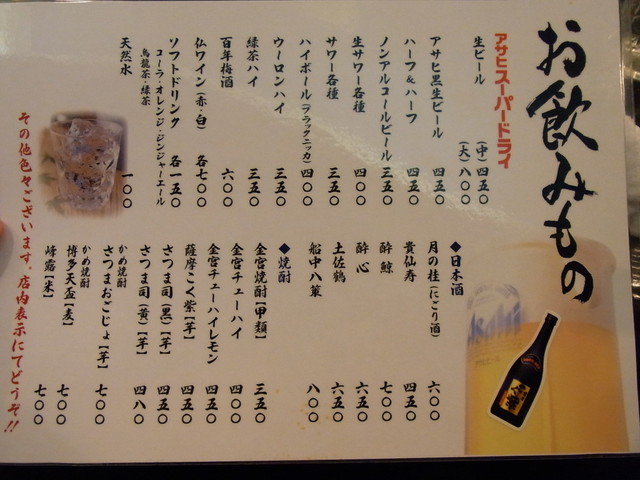 お飲みもの
アサヒスーパードライ
生ビール (中) 四五〇
(大) 八〇〇
アサヒ黒生ビール 四五〇
ハーフ&ハーフ 四五〇
ノンアルコールビール 三五〇
生サワー各種 四〇〇
サワー各種 三五〇
ハイボール(ブラックニッカ) 四〇〇
ウーロンハイ 三五〇
緑茶ハイ 三五〇
百年梅酒 六〇〇
仏ワイン(赤・白) 各七〇〇
ソフトドリンク 各一五〇
コーラ・オレンジ・ジンジャーエール
烏龍茶・緑茶
天然水 一〇〇
◆日本酒
月の桂(にごり酒) 六〇〇
貴仙寿 四五〇
酔鯨 七〇〇
酔心 六五〇
土佐鶴 六五〇
船中八策 八〇〇
◆焼酎
金宮焼酎【甲類】 三五〇
金宮チューハイ 四〇〇
金宮チューハイレモン 四五〇
薩摩こく紫【芋】 四五〇
さつま司(黒)【芋】 四五〇
さつま司(黄)【芋】 四八〇
かめ焼酎
さつまおごじょ【芋】 七〇〇
かめ焼酎
博多天盃【麦】 七〇〇
峰露【米】 七〇〇
その他色々ございます。店内表示にてどうぞ!!
Asahi